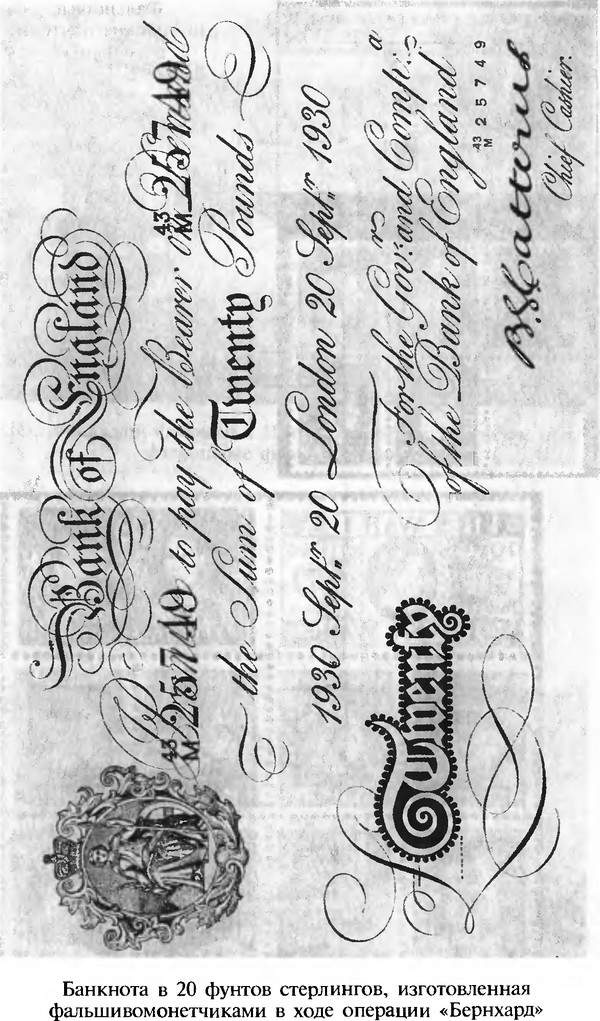 Bank of England
43
M 25749 to pay the Bearer on Demand 43
M 25749
the Sum of Twenty Pounds
1930 Septr. 20 London 20 Septr. 1930
For the Govr. and Compa.
of the Bank of England
43
M 25749
B.G. Catterns
Chief Cashier.
Twenty
Банкнота в 20 фунтов стерлингов, изготовленная
фальшивомонетчиками в ходе операции «Бернхард»